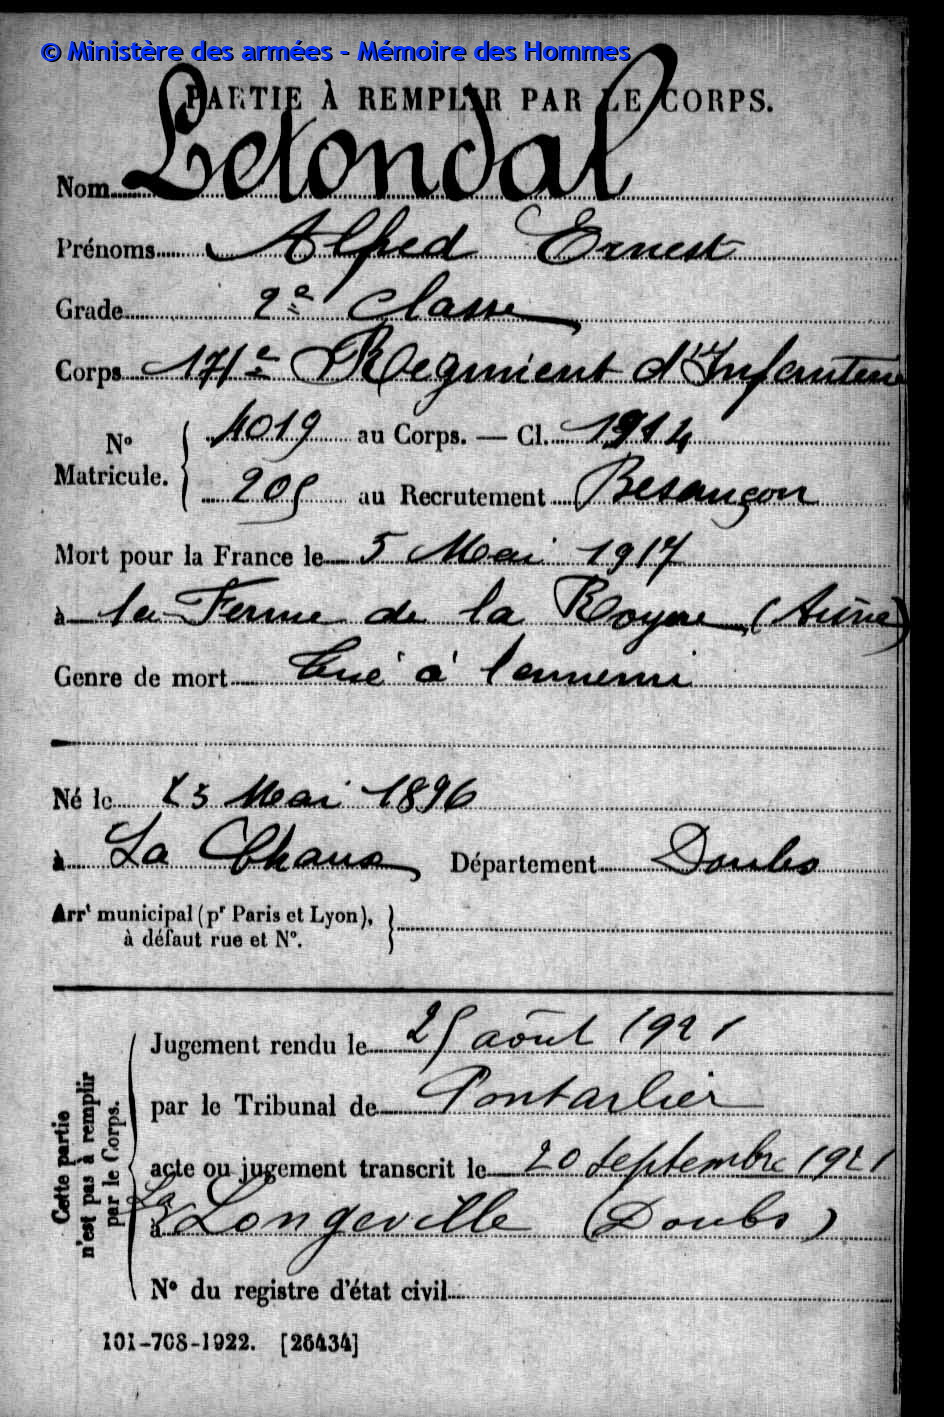 © Ministère des armées - Mémoire des Hommes
PARTIE À REMPLIR PAR LE CORPS.
Nom Letondal
Prénoms Alfred Ernest
Grade 2e classe
Corps 171e Regiment d'Infanterie
N° Matricule. { 4019 au Corps. — Cl. 1914
205 au Recrutement Besançon
Mort pour la France le 5 Mai 1917
à la Ferme de la Royere (Aisne)
Genre de mort Tué à l'ennemi
Né le 25 Mai 1896
à La Chaux Département Doubs
Arrt municipal (pr Paris et Lyon),
à défaut rue et N°.
Cette partie
n'est pas à remplir
par le Corps.
Jugement rendu le 25 août 1921
par le Tribunal de Pontarlier
acte ou jugement transcrit le 20 septembre 1921
à La Longeville (Doubs)
N° du registre d'état civil
101-708-1922. [26434]